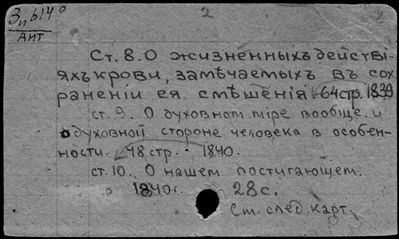 2
Зп614°
Ант
Ст. 8. О жизненныхъ действі-
яхъ крови, замѣчаемыхъ въ сох
раненіи ея смѣшенія 64 стр. 1839
ст. 9. О духовном міре вообще и
о духовной стороне человека в особен-
ности. 48 стр. 1840.
ст. 10. О нашем постигающем.
1840г. 28 с.
См. след. карт.